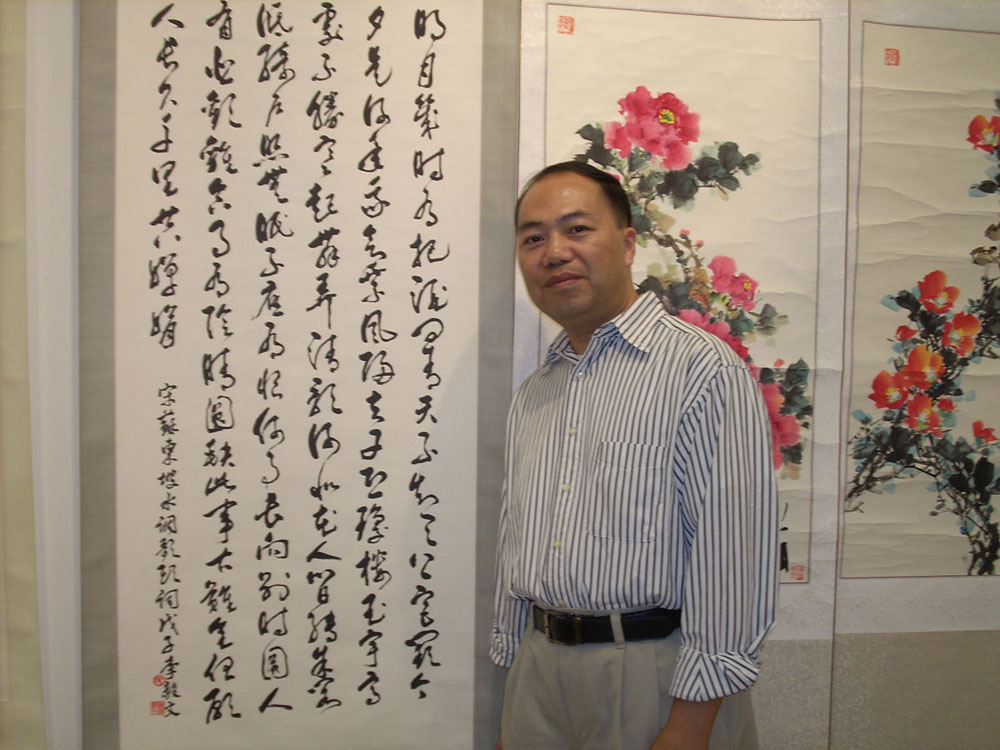 明月幾時有把酒問青天不知天上宮闕今
夕是何年我欲乘風歸去又恐瓊樓玉宇高
處不勝寒起舞弄清影何似在人間轉朱閣
低綺戶照無眠不應有恨何事長向別時圓人
有悲歡離合月有陰晴圓缺此事古難全但願
人長久千里共嬋娟
宋蘇東坡水調歌頭詞戊子李毅文